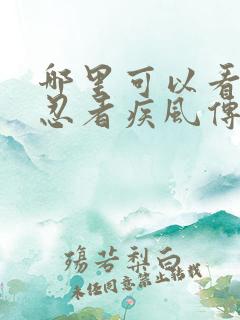 哪里可以看
忍者疾风传
殇若梨白
未经同意禁止转载